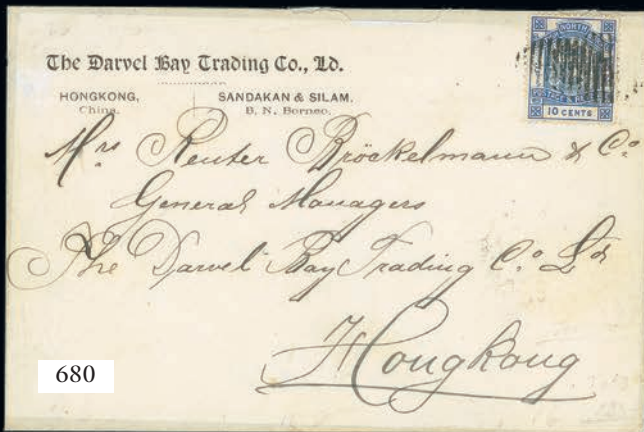 The Darvel Bay Trading Co., Ld.
HONGKONG,
China.
SANDAKAN & SILAM.
B. N. Borneo.
NORTH
POSTAGE &
10 CENTS
Mrs Reuter Bröckelmann & Co.
General Managers
The Darvel Bay Trading Co. Ld
Hongkong
680